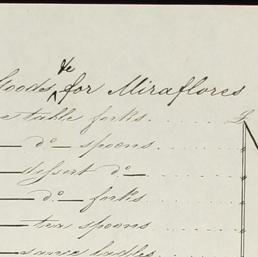 Goods &c for Miraflores
table forks
— do — spoons
— dessert do —
— do — forks
— tea spoons
— sauce ladles